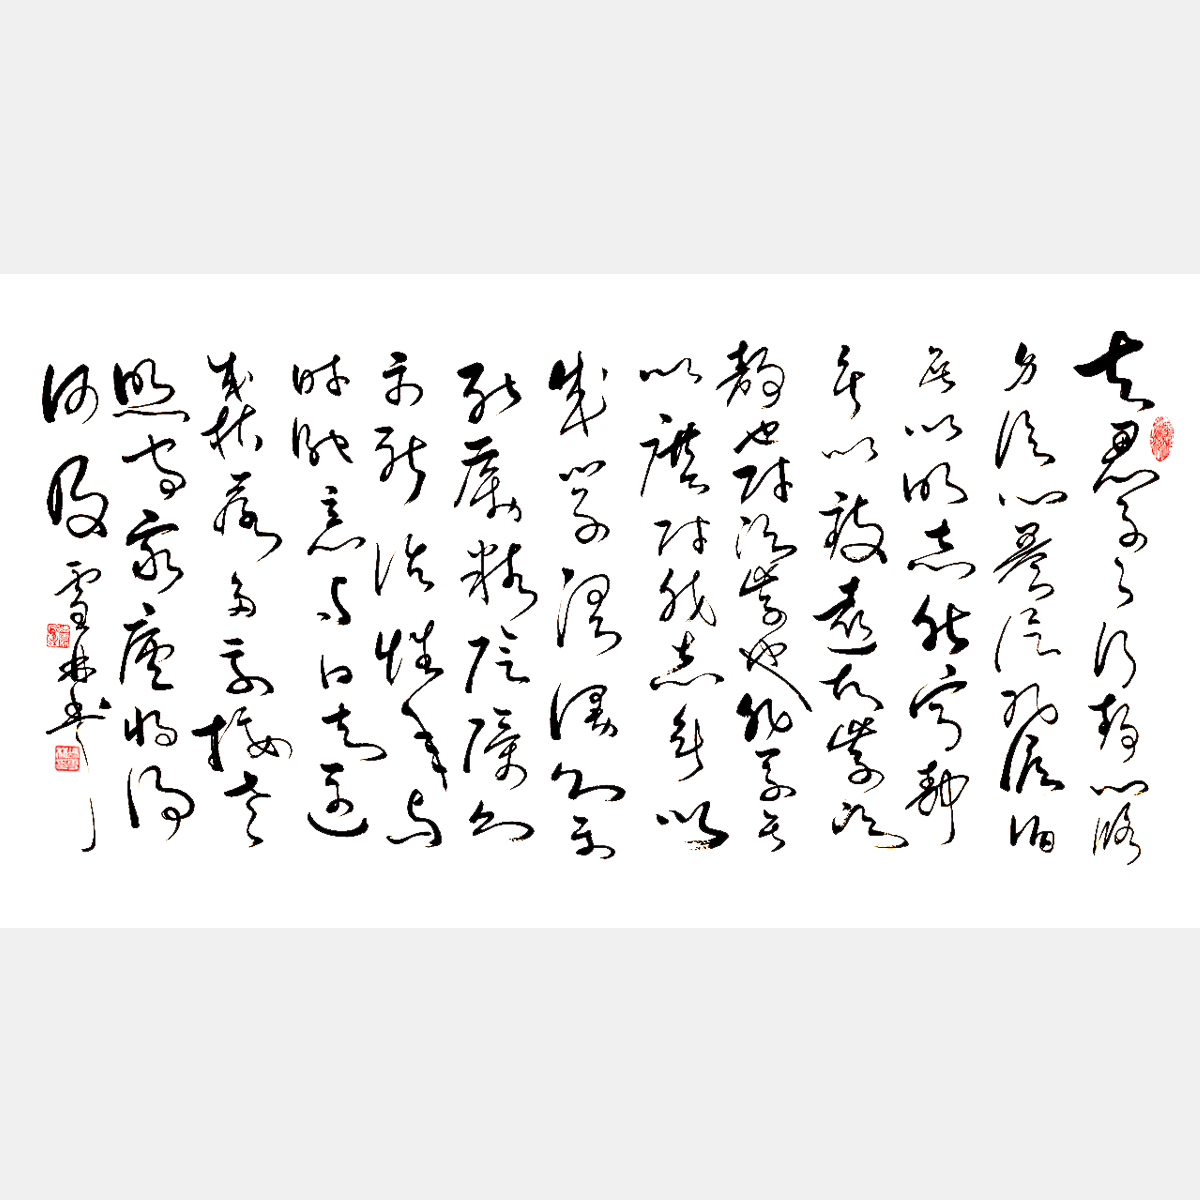 夫君子之行静以修
身俭以养德非澹泊
无以明志非宁静
无以致远夫学须
静也才须学也非学无
以广才非志无以
成学淫慢则不
能励精险躁则
不能治性年与
时驰意与日去遂
成枯落多不接世
悲守穷庐将复
何及
雪林书